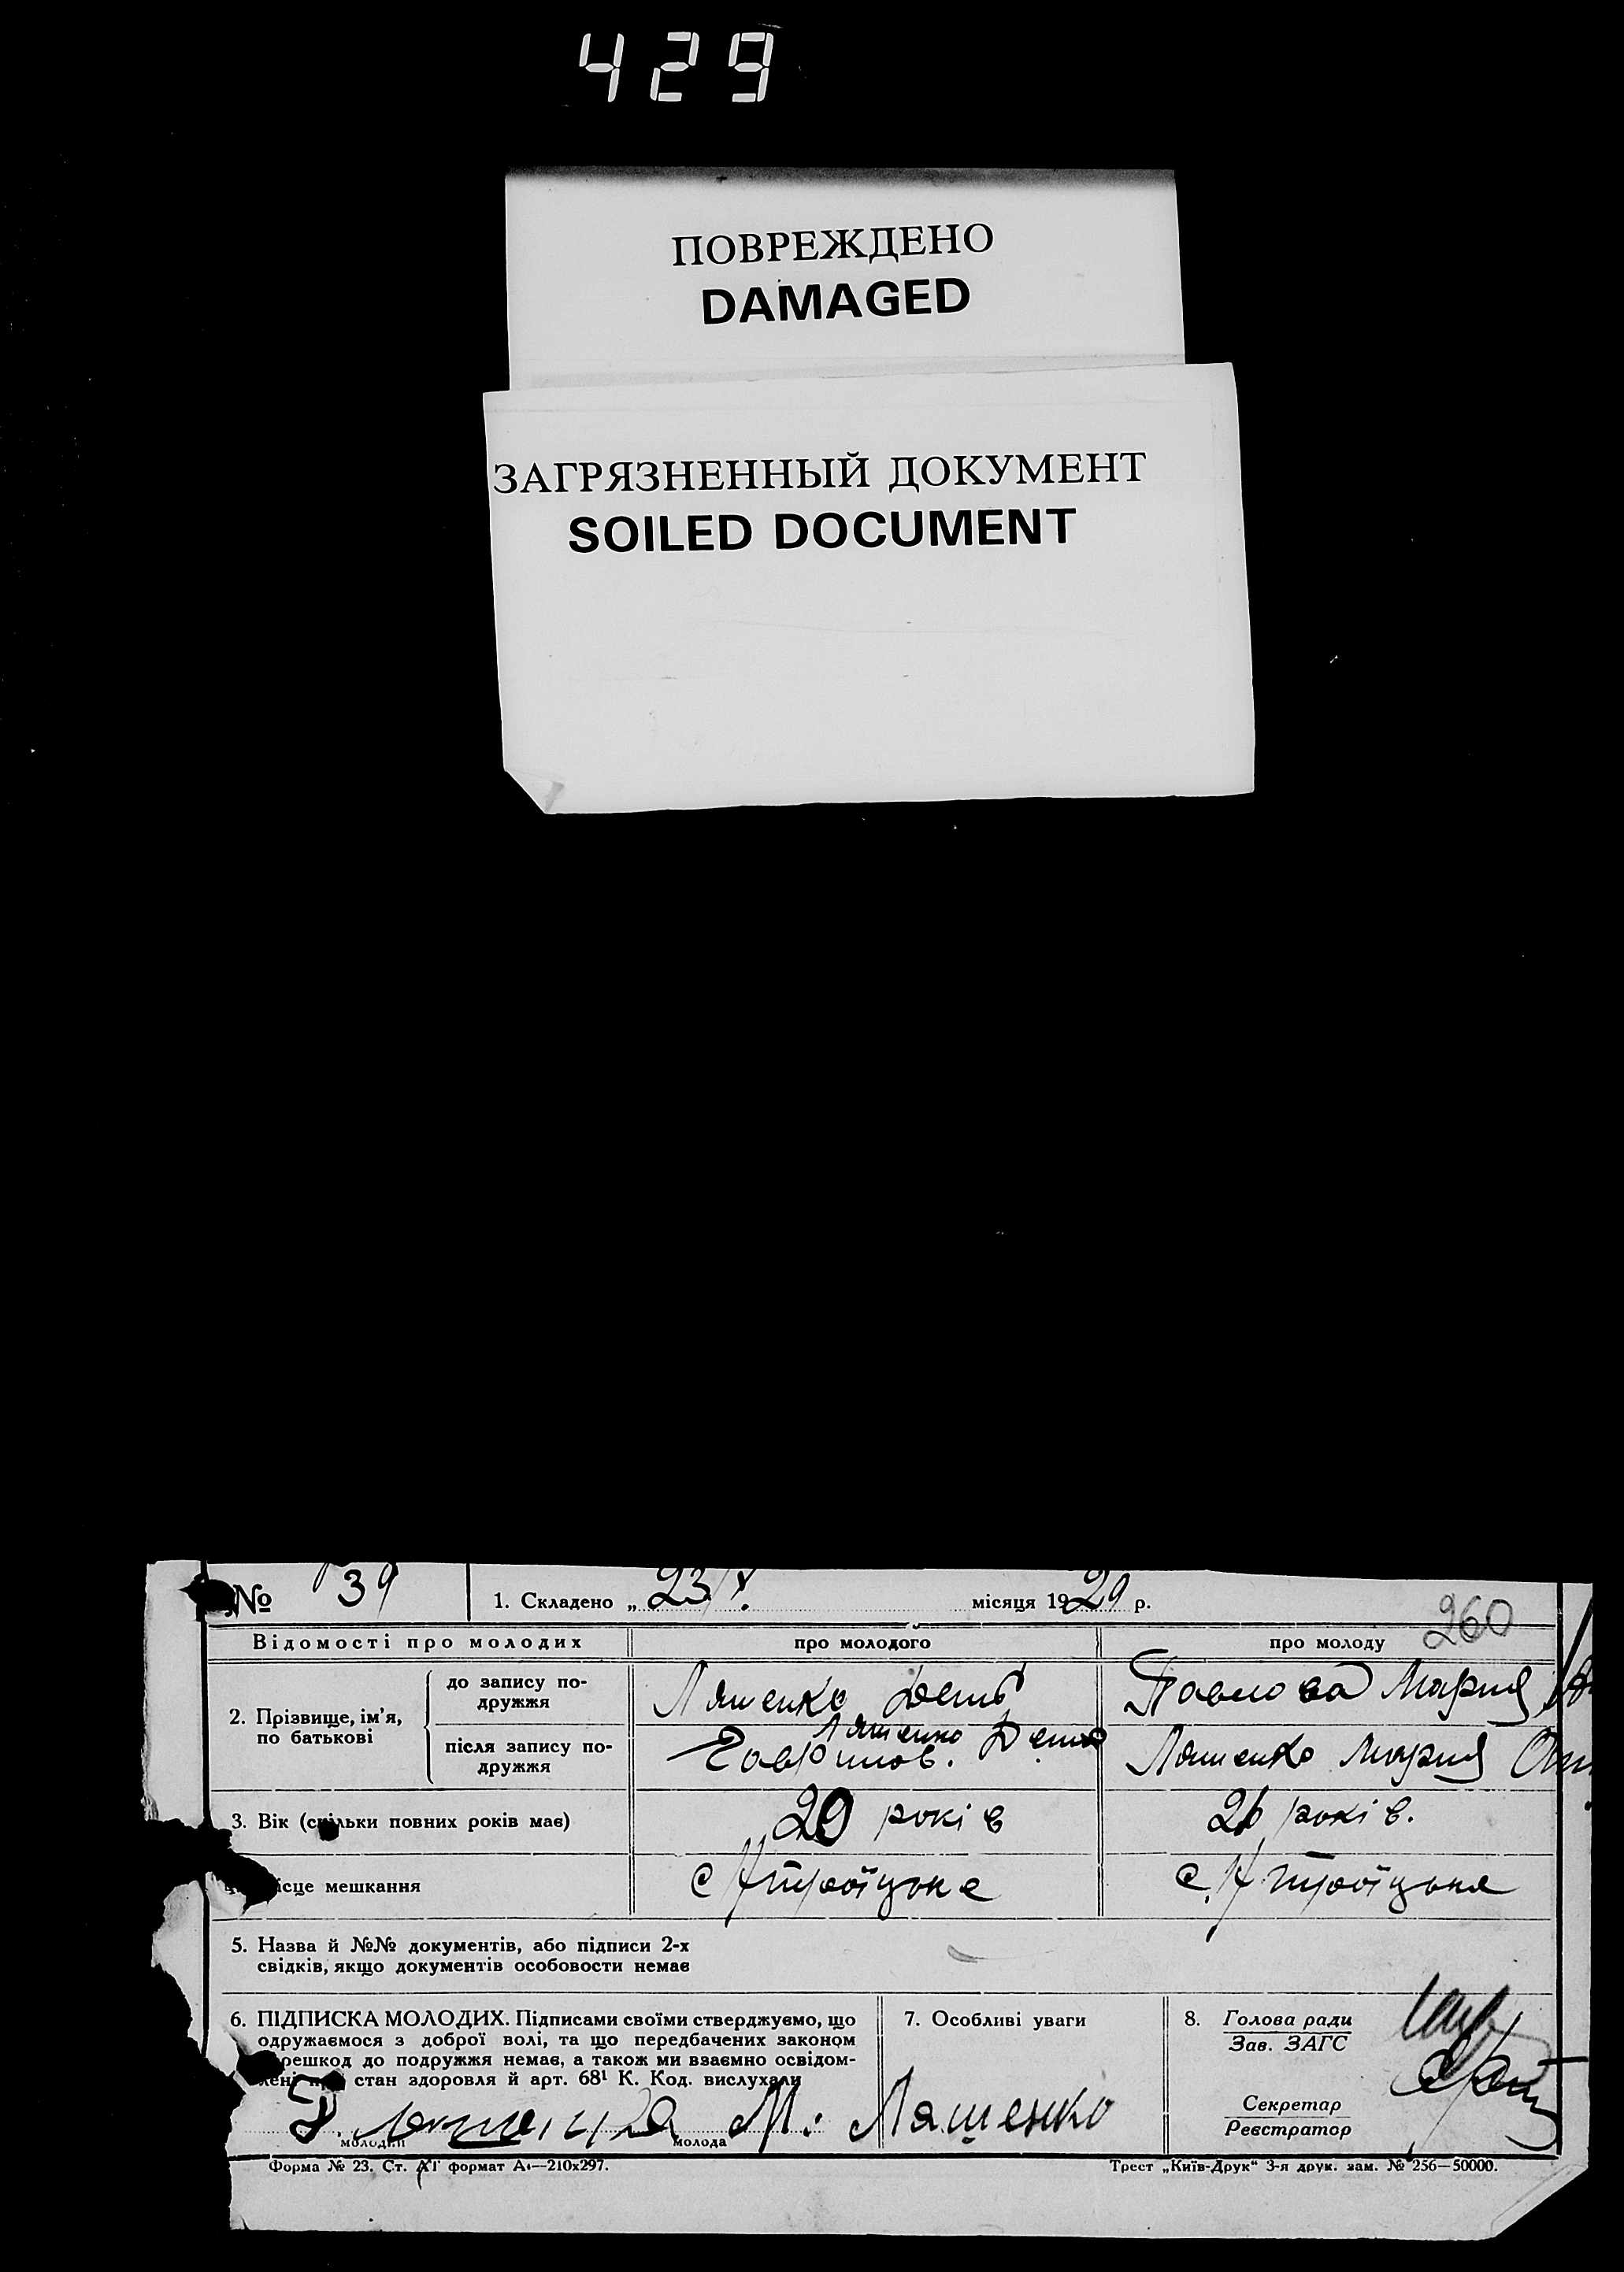 429
ПОВРЕЖДЕНО
DAMAGED
ЗАГРЯЗНЕННЫЙ ДОКУМЕНТ
SOILED DOCUMENT
№ 39
1. Складено „ 23/X. місяця 1929 р.
260
Відомості про молодих
про молодого
про молоду
2. Прізвище, ім'я,
по батькові
до запису по-
дружжя
Ляшенко
Павлова Мария
після запису по-
дружжя
Ляшенко
Гаврилов.
Ляшенко Мария
3. Вік (скільки повних років має)
20 років
26 років.
ісце мешкання
с. Н Троїцьке
с. Н Троїцьке
5. Назва й №№ документів, або підписи 2-х
свідків, якщо документів особовости немає
6. ПІДПИСКА МОЛОДИХ. Підписами своїми стверджуємо, що
одружаємося з доброї волі, та що передбачених законом
решкод до подружжя немає, а також ми взаємно освідом-
лені стан здоровля й арт. 68¹ К. Код. вислухали
молодий
молода М. Ляшенко
7. Особливі уваги
8. Голова ради
Зав. ЗАГС
Секретар
Реєстратор
Форма № 23. Ст. АГ формат А4—210х297.
Трест „Київ-Друк“ 3-я друк. зам. № 256—50000.